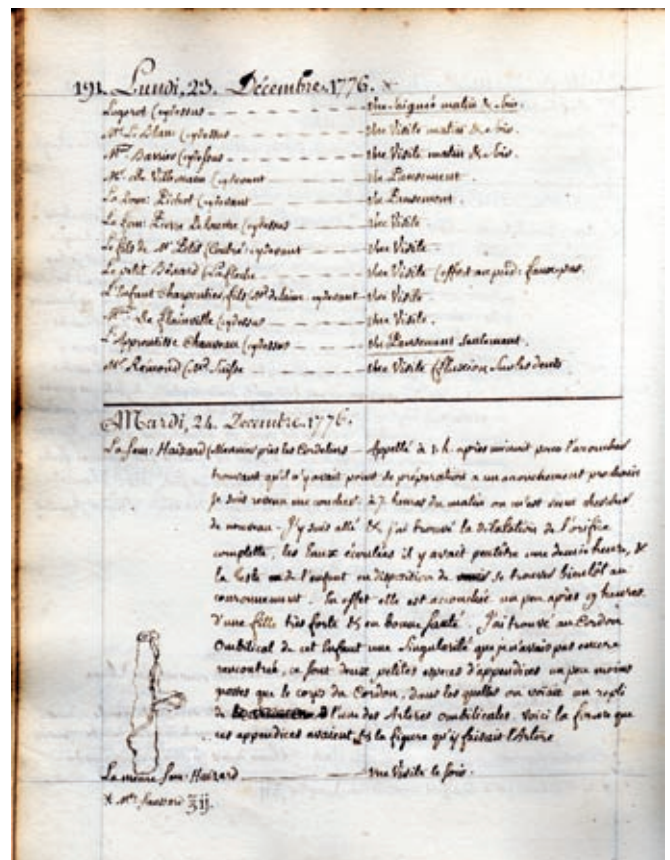 191. Lundi, 23. Décembre. 1776. x
Cydessus une Saignée matin & soir
Mr. Le Blanc Cydessus une Visite matin & soir.
Barrier Cydessus une Visite matin & soir.
Mr. de Villemain Cydevant un Pansement
La fem: Pichot Cydevant un Pansement.
La fem: Pierre Cydessus une Visite
Le fils de Mr. Petit Cydevant une Visite.
Le petit Bénard une Visite (effort au pied: faux pas.
L'Enfant Charpentier, fils Cydevant une Visite.
De Plainville Cydessus une Visite.
L'Apprentisse Chauveau Cydessus un Pansement seulement.
Mr. Rémond une Visite (fluxion sur les dents
Mardi, 24. Decembre. 1776.
La fem: Haizard près les Cordeliers Appellé à 1 h. après minuit pour l'accoucher
trouvant qu'il n'y avait point de préparation a un accouchement prochain
je suis revenu me coucher. à 7 heures du matin on m'est venu chercher
de nouveau. J'y suis allé & j'ai trouvé la dilatation de l'orifice
complette, les Eaux écoulées il y avait peutêtre une demie heure, &
la teste de l'enfant en disposition de se trouver bientôt au
couronnement. En effet elle est accouchée un peu après 9 heures
d'une fille très forte & en bonne santé. J'ai trouvé au Cordon
Ombilical de cet Enfant une Singularité que je n'avais pas encore
rencontrée, ce sont deux petites especes d'appendices un peu moins
grosses que le corps du Cordon, dans les quelles on voiait un repli
de l'une des Arteres ombilicales. Voici la figure que
ces appendices avaient & la figure qu'y faisait l'Artere
La meme fem: Haizard une Visite le soir.
x Mr.